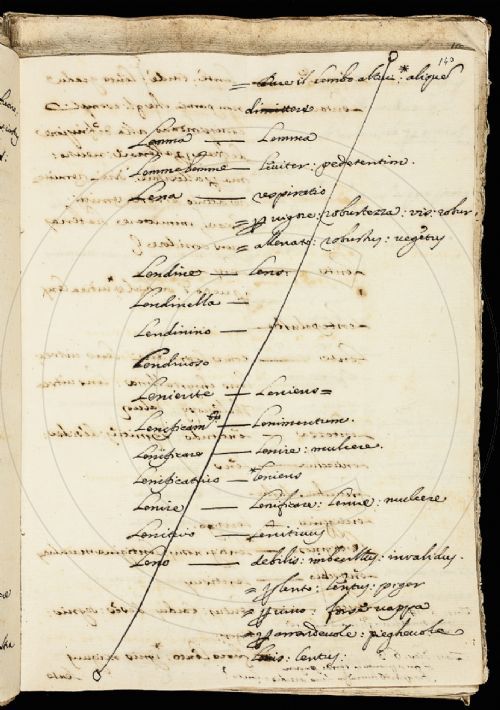 140
= Dare il lembo altrui *: aliquē
dimittere
Lemma — Lemma
Lemme lemme — leviter: pedetentim.
Lena — respiratio
= p vigore: robustezza: vis: robur.
= allenato: robustus: vegetus
Lendine — Lens:
Lendinella —
Lendinino —
Lendinoso
Leniente — Leniens =
Lenificam.to — Lenimentum.
Lenificare — Lenire: mulcere.
Lenificativo — *leniens
Lenire — Lenificare: lenire: mulcere
Lenitivo — Lenitivus
Leno — debilis: imbecillus: invalidus.
= p lento: lentus: piger
= p vino: forse vappa
= p arrendevole: pieghevole
lentus: